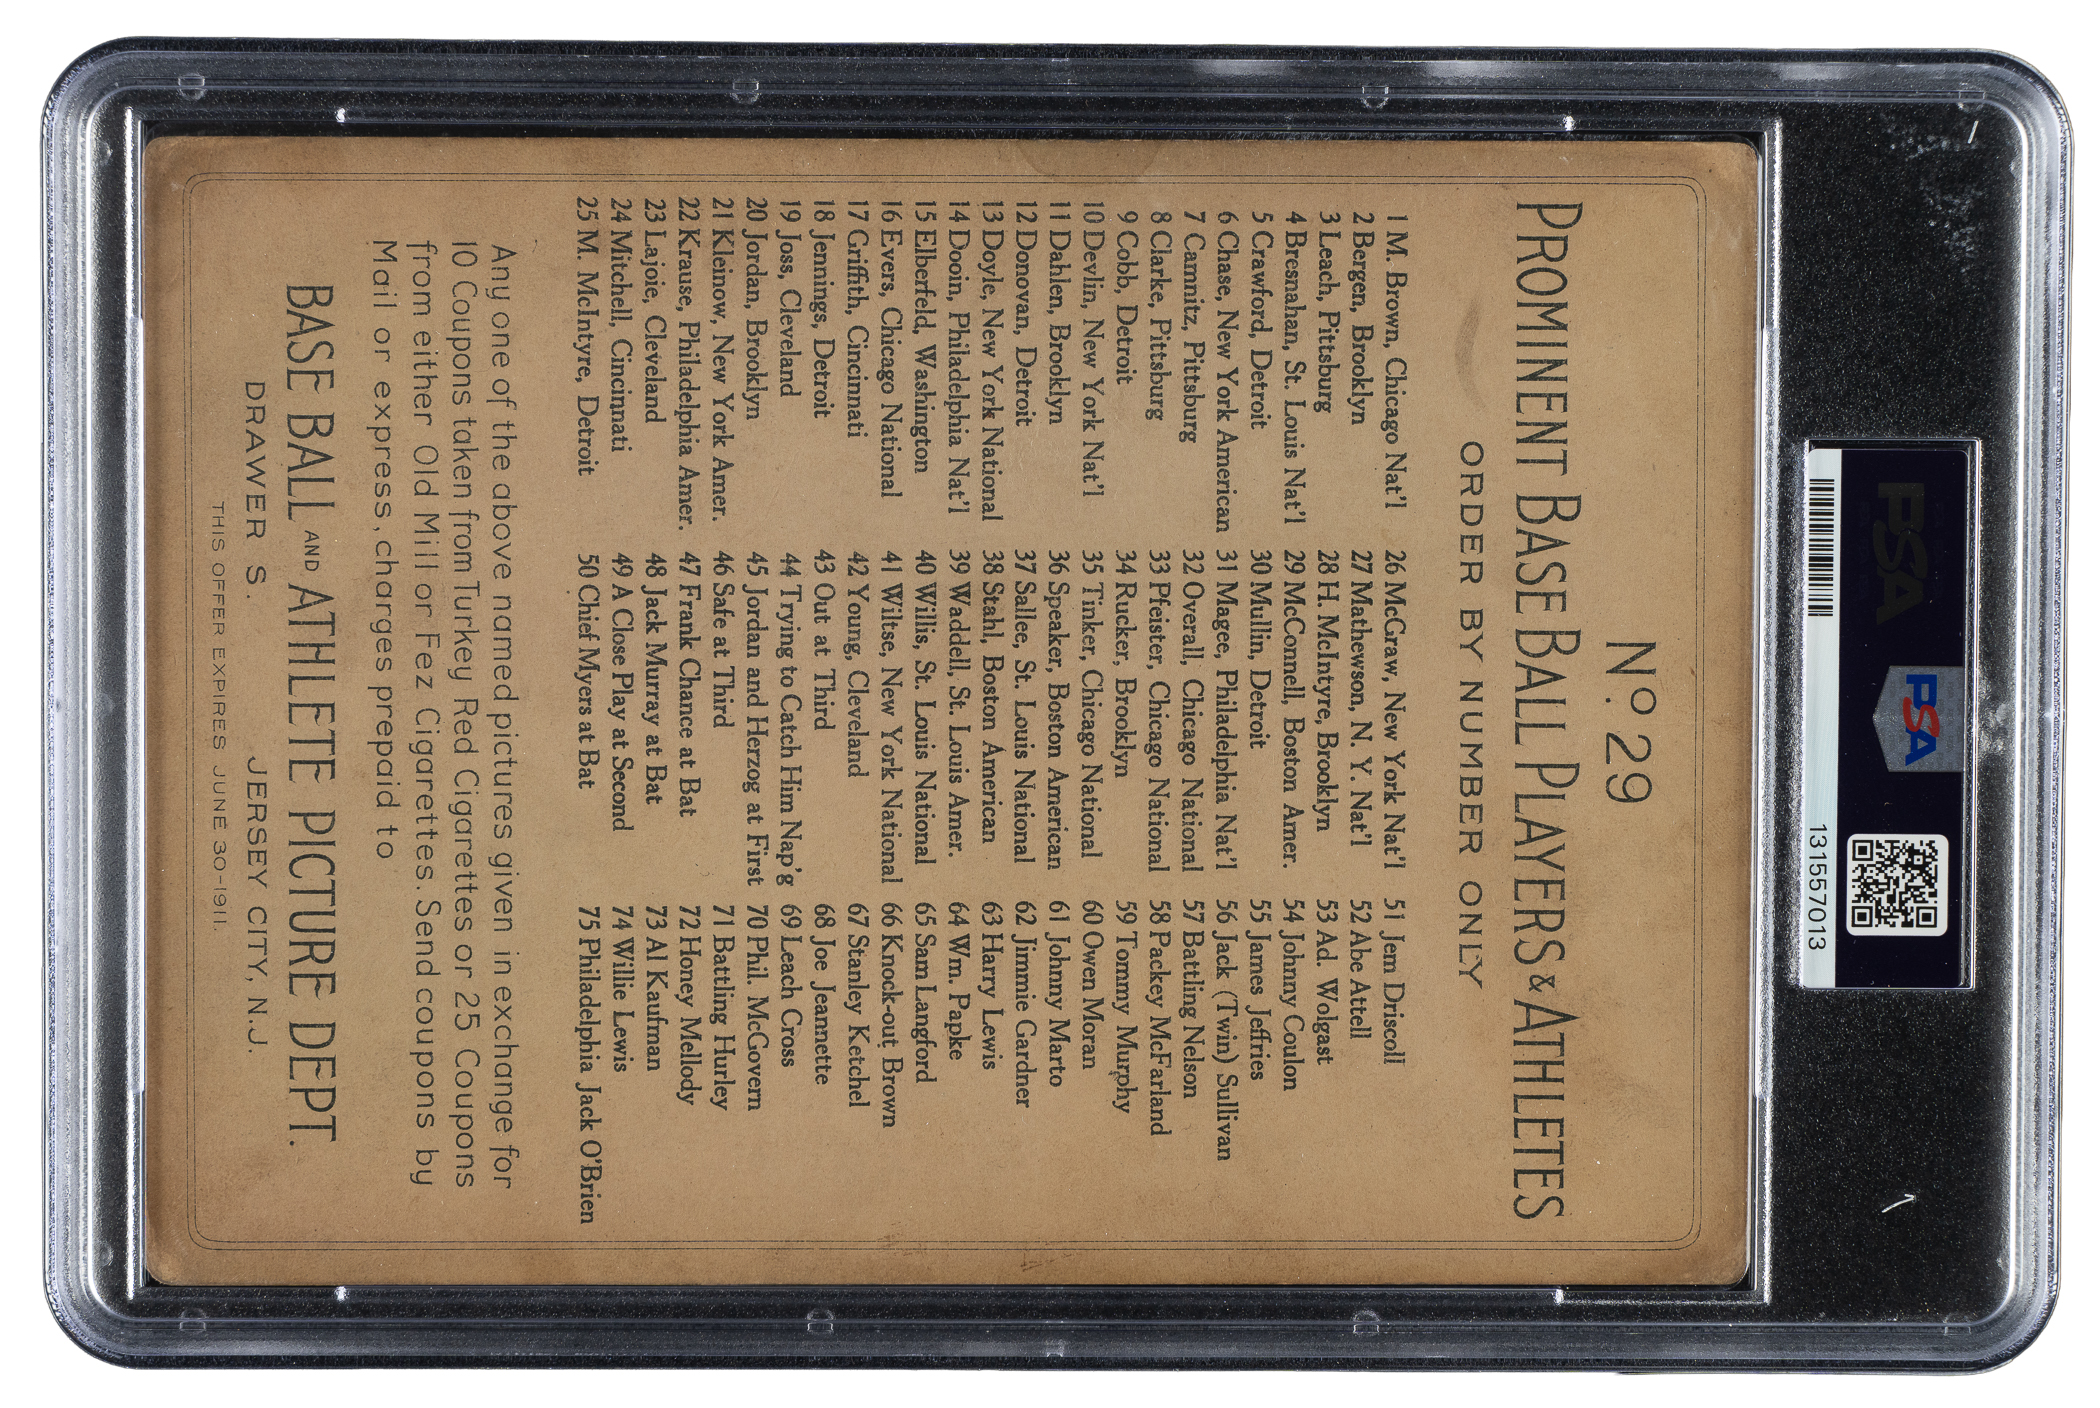 No. 29
PROMINENT BASE BALL PLAYERS & ATHLETES
ORDER BY NUMBER ONLY
1 M. Brown, Chicago Nat'l
2 Bergen, Brooklyn
3 Leach, Pittsburg
4 Bresnahan, St. Louis Nat'l
5 Crawford, Detroit
6 Chase, New York American
7 Camnitz, Pittsburg
8 Clarke, Pittsburg
9 Cobb, Detroit
10 Devlin, New York Nat'l
11 Dahlen, Brooklyn
12 Donovan, Detroit
13 Doyle, New York National
14 Dooin, Philadelphia Nat'l
15 Elberfeld, Washington
16 Evers, Chicago National
17 Griffith, Cincinnati
18 Jennings, Detroit
19 Joss, Cleveland
20 Jordan, Brooklyn
21 Kleinow, New York Amer.
22 Krause, Philadelphia Amer.
23 Lajoie, Cleveland
24 Mitchell, Cincinnati
25 M. McIntyre, Detroit
26 McGraw, New York Nat'l
27 Mathewson, N. Y. Nat'l
28 H. McIntyre, Brooklyn
29 McConnell, Boston Amer.
30 Mullin, Detroit
31 Magee, Philadelphia Nat'l
32 Overall, Chicago National
33 Pfeister, Chicago National
34 Rucker, Brooklyn
35 Tinker, Chicago National
36 Speaker, Boston American
37 Sallee, St. Louis National
38 Stahl, Boston American
39 Waddell, St. Louis Amer.
40 Willis, St. Louis National
41 Wiltse, New York National
42 Young, Cleveland
43 Out at Third
44 Trying to Catch Him Nap'g
45 Jordan and Herzog at First
46 Safe at Third
47 Frank Chance at Bat
48 Jack Murray at Bat
49 A Close Play at Second
50 Chief Myers at Bat
51 Jem Driscoll
52 Abe Attell
53 Ad. Wolgast
54 Johnny Coulon
55 James Jeffries
56 Jack (Twin) Sullivan
57 Battling Nelson
58 Packey McFarland
59 Tommy Murphy
60 Owen Moran
61 Johnny Marto
62 Jimmie Gardner
63 Harry Lewis
64 Wm. Papke
65 Sam Langford
66 Knock-out Brown
67 Stanley Ketchel
68 Joe Jeannette
69 Leach Cross
70 Phil. McGovern
71 Battling Hurley
72 Honey Mellody
73 Al Kaufman
74 Willie Lewis
75 Philadelphia Jack O'Brien
Any one of the above named pictures given in exchange for
10 Coupons taken from Turkey Red Cigarettes or 25 Coupons
from either Old Mill or Fez Cigarettes. Send coupons by
Mail or express, charges prepaid to
BASE BALL AND ATHLETE PICTURE DEPT.
DRAWER S. JERSEY CITY, N.J.
THIS OFFER EXPIRES JUNE 30-1911.
PSA
PSA
131557013